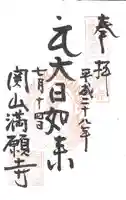 奉拝
平成二十八年
大日如来
七月十四日
関山満願寺